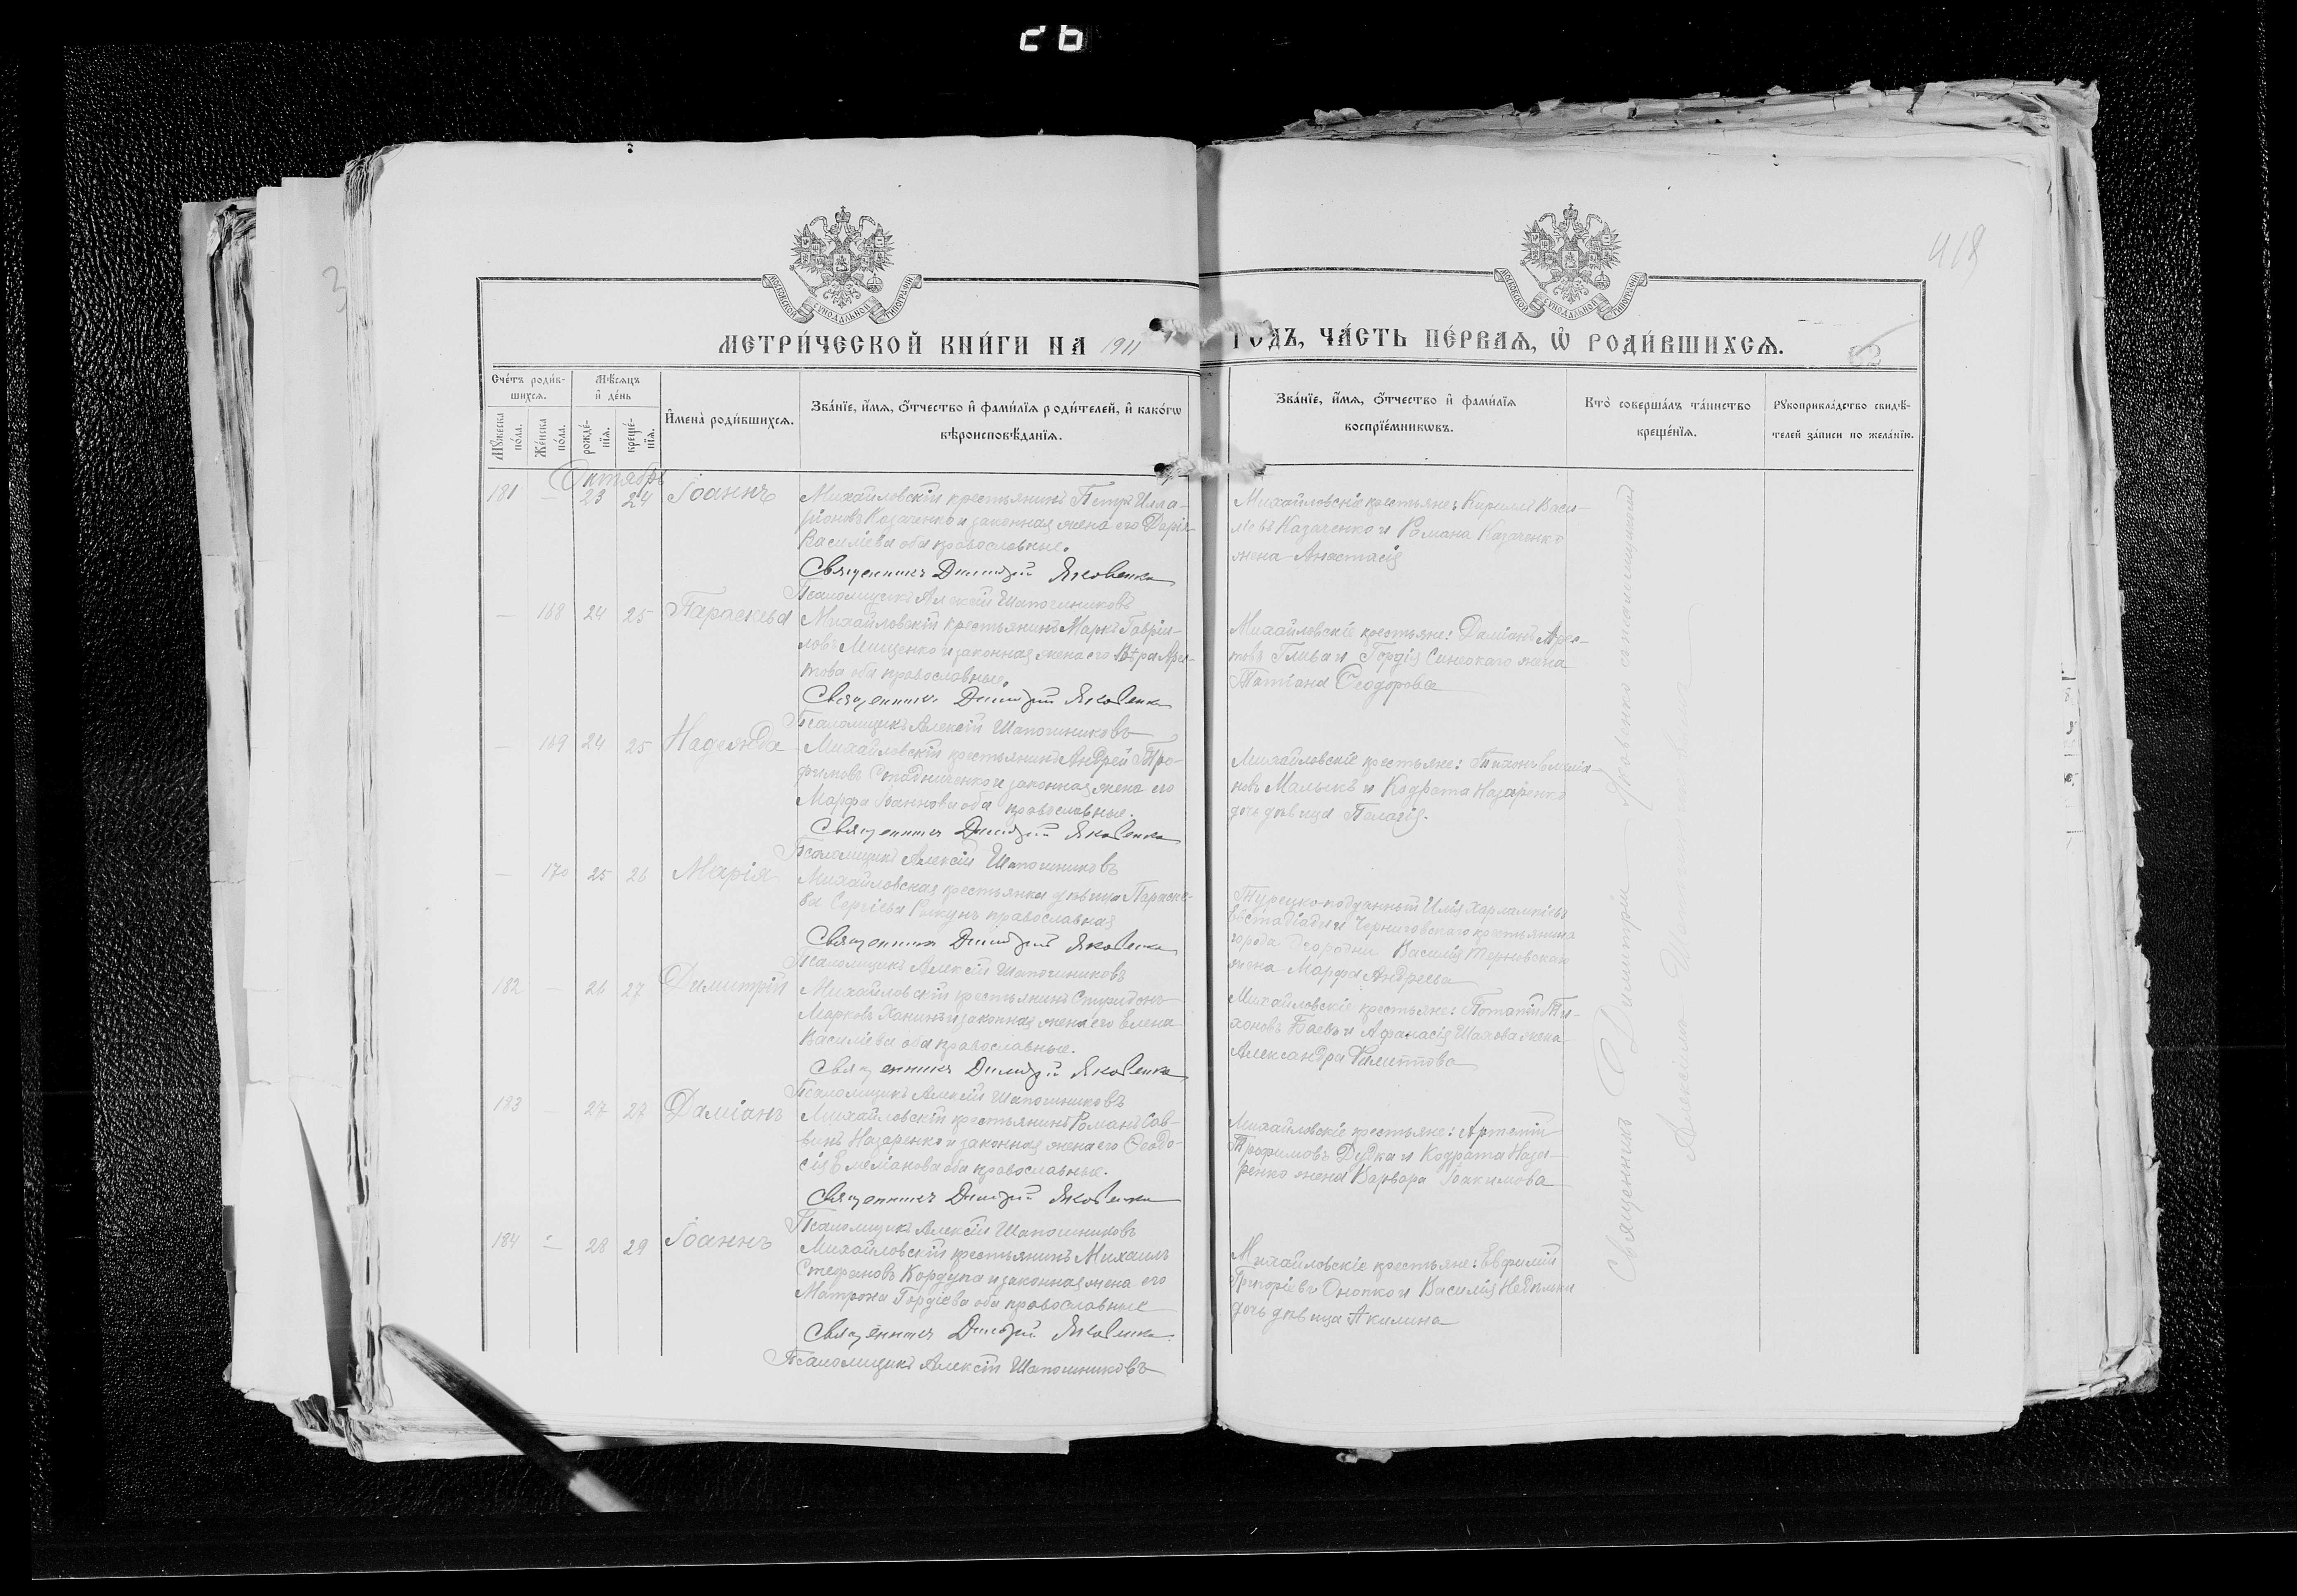 26
418
МОСКОВСКОЙ СѴНОДАЛЬНОЙ ТИПОГРАФІИ
МОСКОВСКОЙ СѴНОДАЛЬНОЙ ТИПОГРАФІИ
МЕТРИ́ЧЕСКОЙ КНИ́ГИ НА 1911 ГОДЪ, ЧА́СТЬ ПЕ́РВАЯ, Ѡ҆ РОДИ́ВШИХСЯ.
Сче́тъ роди́в-
шихся.
Мꙋ́жеска по́ла.
Же́нска по́ла.
Мѣ́сяцъ
и҆ де́нь
рожде́-нїя.
креще́-нїя.
И҆мена̀ роди́вшихся.
Зва́нїе, и҆́мя, ѻ҆́тчество и҆ фами́лїя роди́телей, и҆ како́гѡ
вѣроисповѣ́данїя.
Зва́нїе, и҆́мя, ѻ҆́тчество и҆ фами́лїя
воспрїе́мникѡвъ.
Кто̀ соверша́лъ та́инство
креще́нїя.
Рꙋкоприкла́дство свидѣ́-
телей за́писи по жела́нїю.
Октябрь
181 — 23 24 Іоаннъ
Михайловскій крестьянинъ Петръ Илла-
ріоновъ Казаченко и законная жена его Дарія
Василіева оба православные.
Священникъ Димитрій Яковенко
Псаломщикъ Алексій Шапошниковъ
Михайловскіе крестьяне: Кириллъ Васи-
ліевъ Казаченко и Романа Казаченко
жена Анастасія
— 168 24 25 Параскева
Михайловскій крестьянинъ Маркъ Гаврии-
ловъ Мищенко и законная жена его Вѣра Аре-
това оба православные.
Священникъ Димитрій Яковенко
Псаломщикъ Алексій Шапошниковъ
Михайловскіе крестьяне: Даміанъ Аре-
товъ Глива и Гордія Синеокаго жена
Татіана Ѳеодорова
— 169 24 25 Надежда
Михайловскій крестьянинъ Андрей Тро-
фимовъ Стадниченко и законная жена его
Марфа Іоаннова оба православные.
Священникъ Димитрій Яковенко
Псаломщикъ Алексій Шапошниковъ
Михайловскіе крестьяне: Тихонъ Емелія-
новъ Малыкъ и Кодрата Назаренко
дочь дѣвица Пелагія.
— 170 25 26 Марія
Михайловская крестьянка дѣвица Параске-
ва Сергіева православная
Священникъ Димитрій Яковенко
Псаломщикъ Алексій Шапошниковъ
Турецко-подданный Илія Харлампіевъ
и Черниговского крестьянина
города Василія Терновскаго
жена Марфа Андреева
182 — 26 27 Димитрій
Михайловскій крестьянинъ Спиридонъ
Марковъ Ханинъ и законная жена его Елена
Василіева оба православные.
Священникъ Димитрій Яковенко
Псаломщикъ Алексій Шапошниковъ
Михайловскіе крестьяне: Потапій Ти-
хоновъ Баевъ и Афанасія Шахова жена
Александра Филиппова
183 — 27 27 Даміанъ
Михайловскій крестьянинъ Романъ Сав-
винъ Назаренко и законная жена его Ѳеодо-
сія Емеліанова оба православные.
Священникъ Димитрій Яковенко
Псаломщикъ Алексій Шапошниковъ
Михайловскіе крестьяне: Артемій
Трофимовъ Дудка и Кодрата Наза-
ренко жена Варвара Іоакимова
184 — 28 29 Іоаннъ
Михайловскій крестьянинъ Михаилъ
Стефановъ Кордупа и законная жена его
Матрона Гордіева оба православные
Священникъ Димитрій Яковенко
Псаломщикъ Алексій Шапошниковъ
Михайловскіе крестьяне: Евфимій
Григоріевъ Онопко и Василія
дочь дѣвица Акилина
Священникъ Димитрій Яковенко съ псаломщикомъ
Алексіемъ